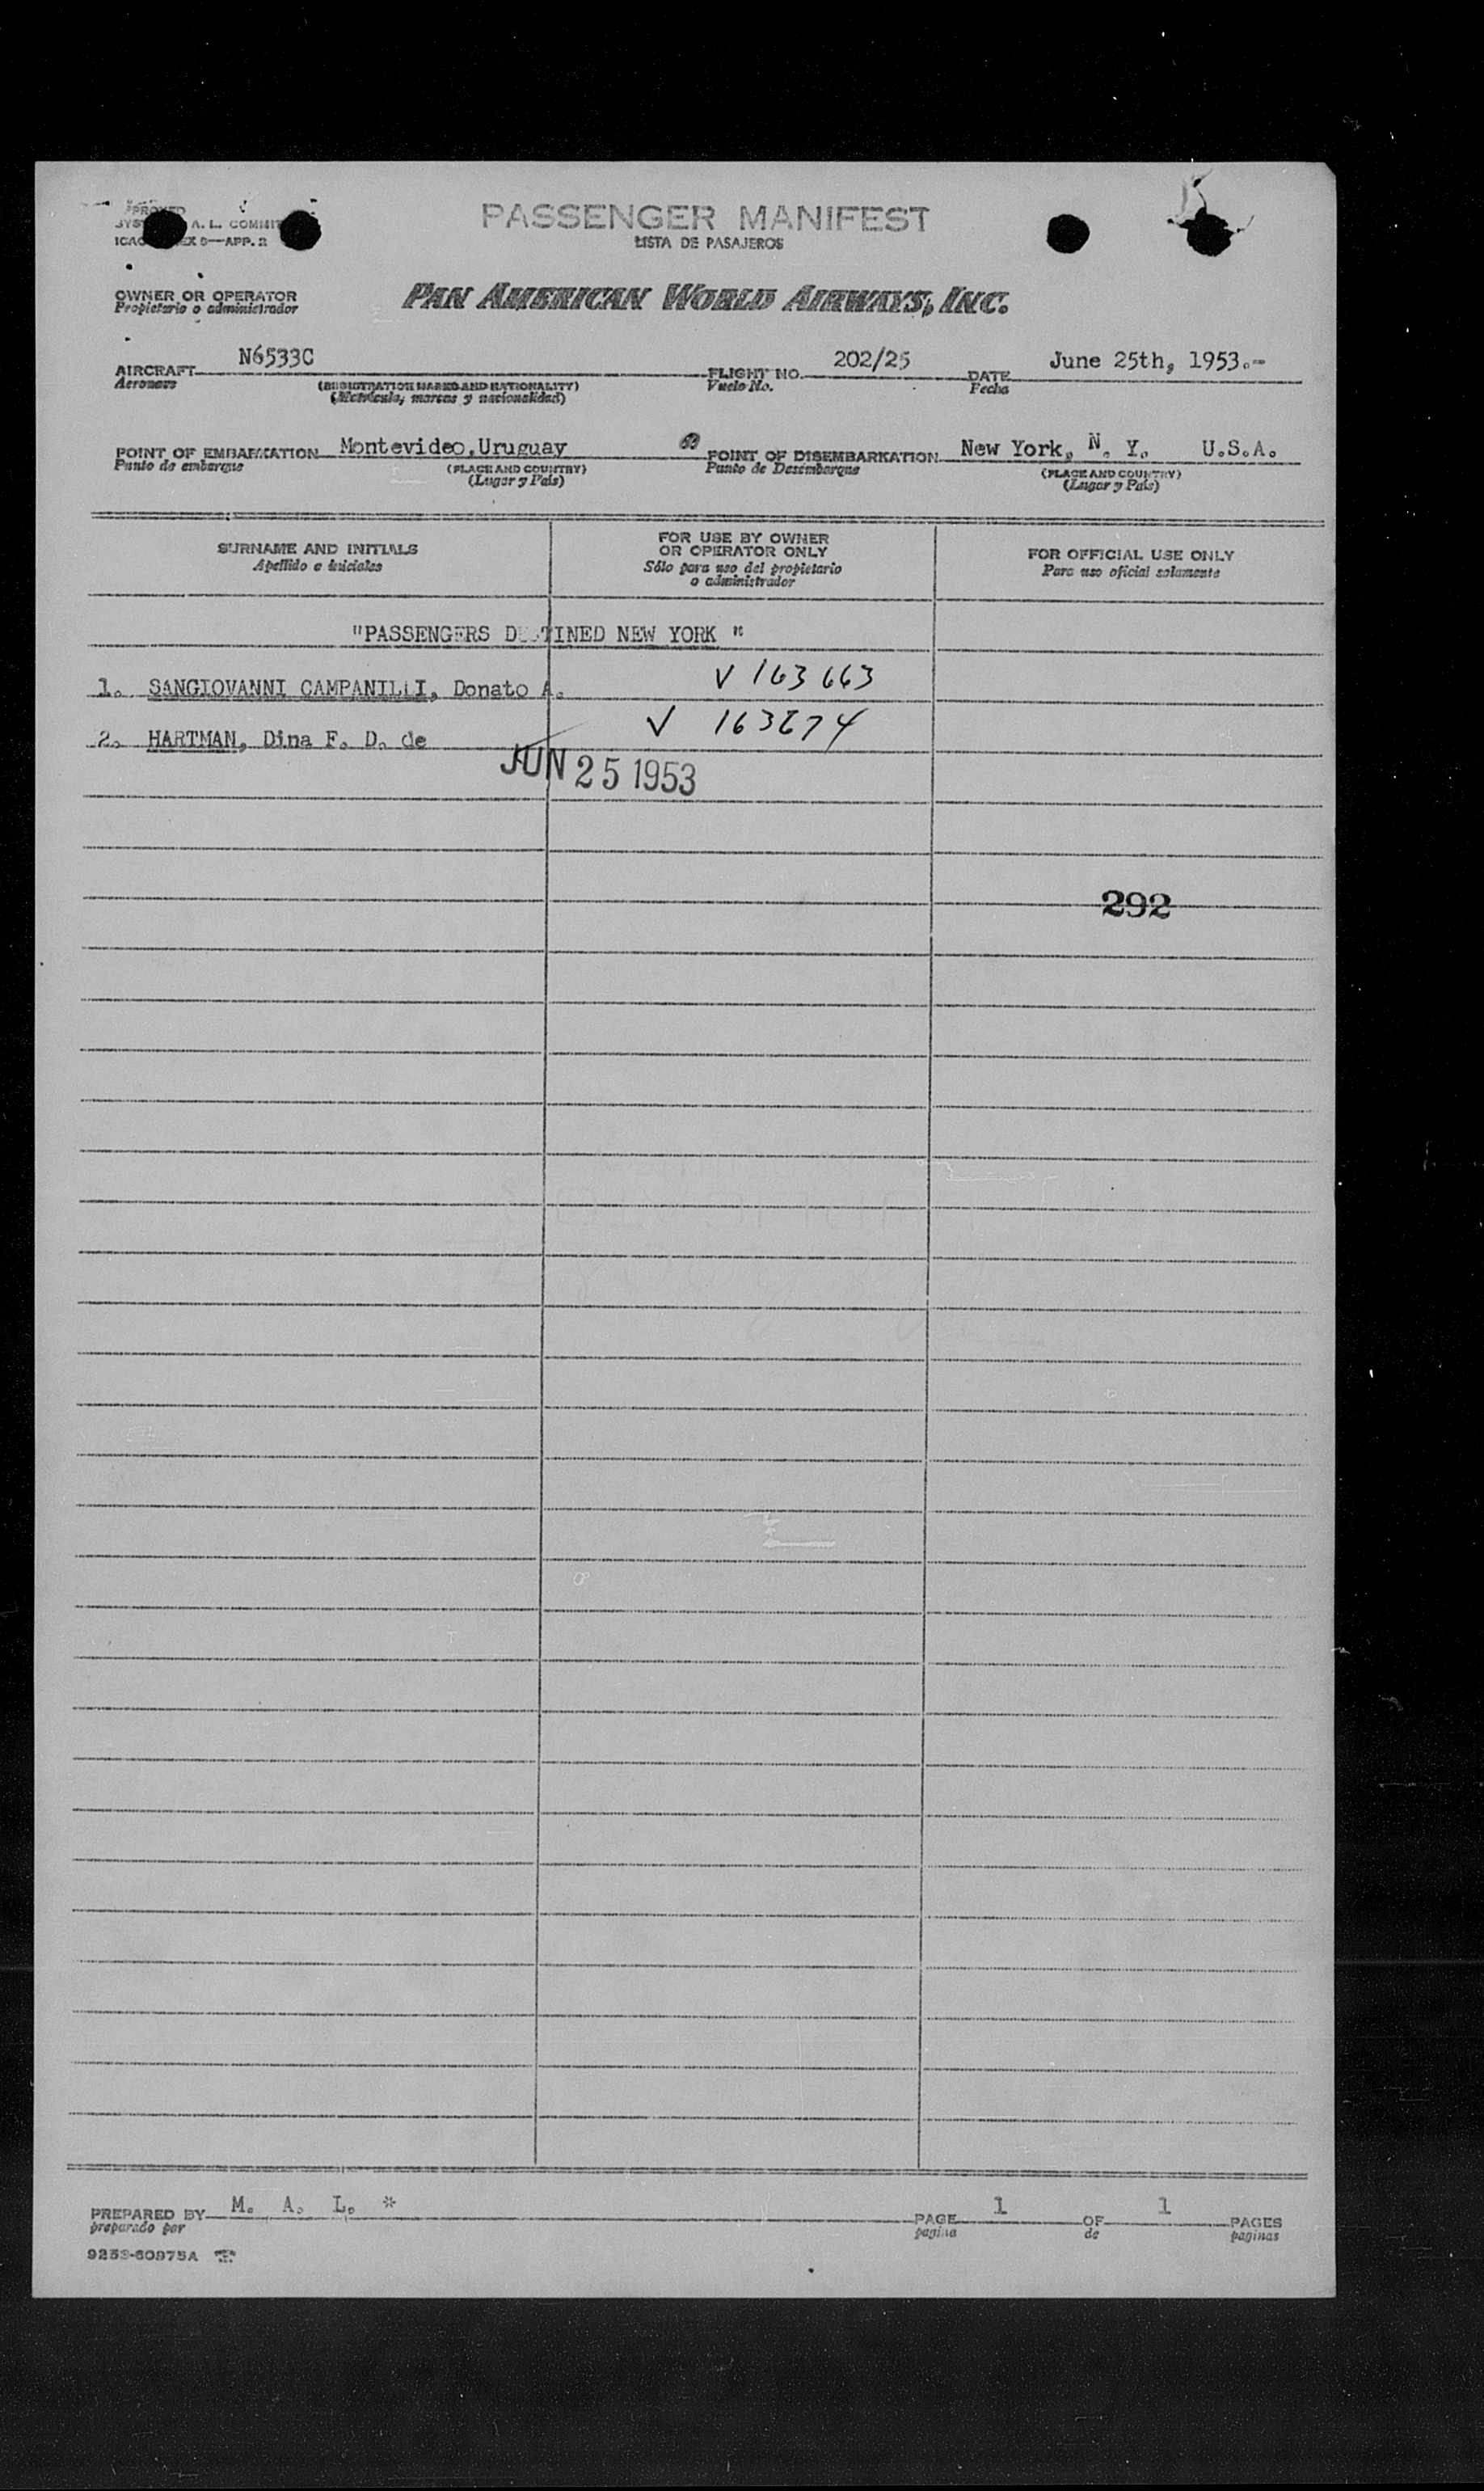 A. L. COMMIT
APP. 2
PASSENGER MANIFEST
LISTA DE PASAJEROS
OWNER OR OPERATOR
Propietario o administrador
PAN AMERICAN WORLD AIRWAYS, INC.
AIRCRAFT N6533C FLIGHT NO. 202/25 DATE June 25th, 1953.-
Aeronave (REGISTRATION MARKS AND NATIONALITY) Vuelo No. Fecha
(Matrícula, marcas y nacionalidad)
POINT OF EMBARKATION Montevideo,Uruguay POINT OF DISEMBARKATION New York, N. Y. U.S.A.
Punto de embarque (PLACE AND COUNTRY) Punto de Desembarque (PLACE AND COUNTRY)
(Lugar y País) (Lugar y País)
SURNAME AND INITIALS
Apellido e iniciales
FOR USE BY OWNER
OR OPERATOR ONLY
Sólo para uso del propietario
o administrador
FOR OFFICIAL USE ONLY
Para uso oficial solamente
"PASSENGERS DESTINED NEW YORK "
1. SANGIOVANNI CAMPANILLI, Donato A. V 163663
2. HARTMAN, Dina F. D. de V 163674
JUN 25 1953
292
PREPARED BY M. A. L. * PAGE 1 OF 1 PAGES
preparado por pagina de paginas